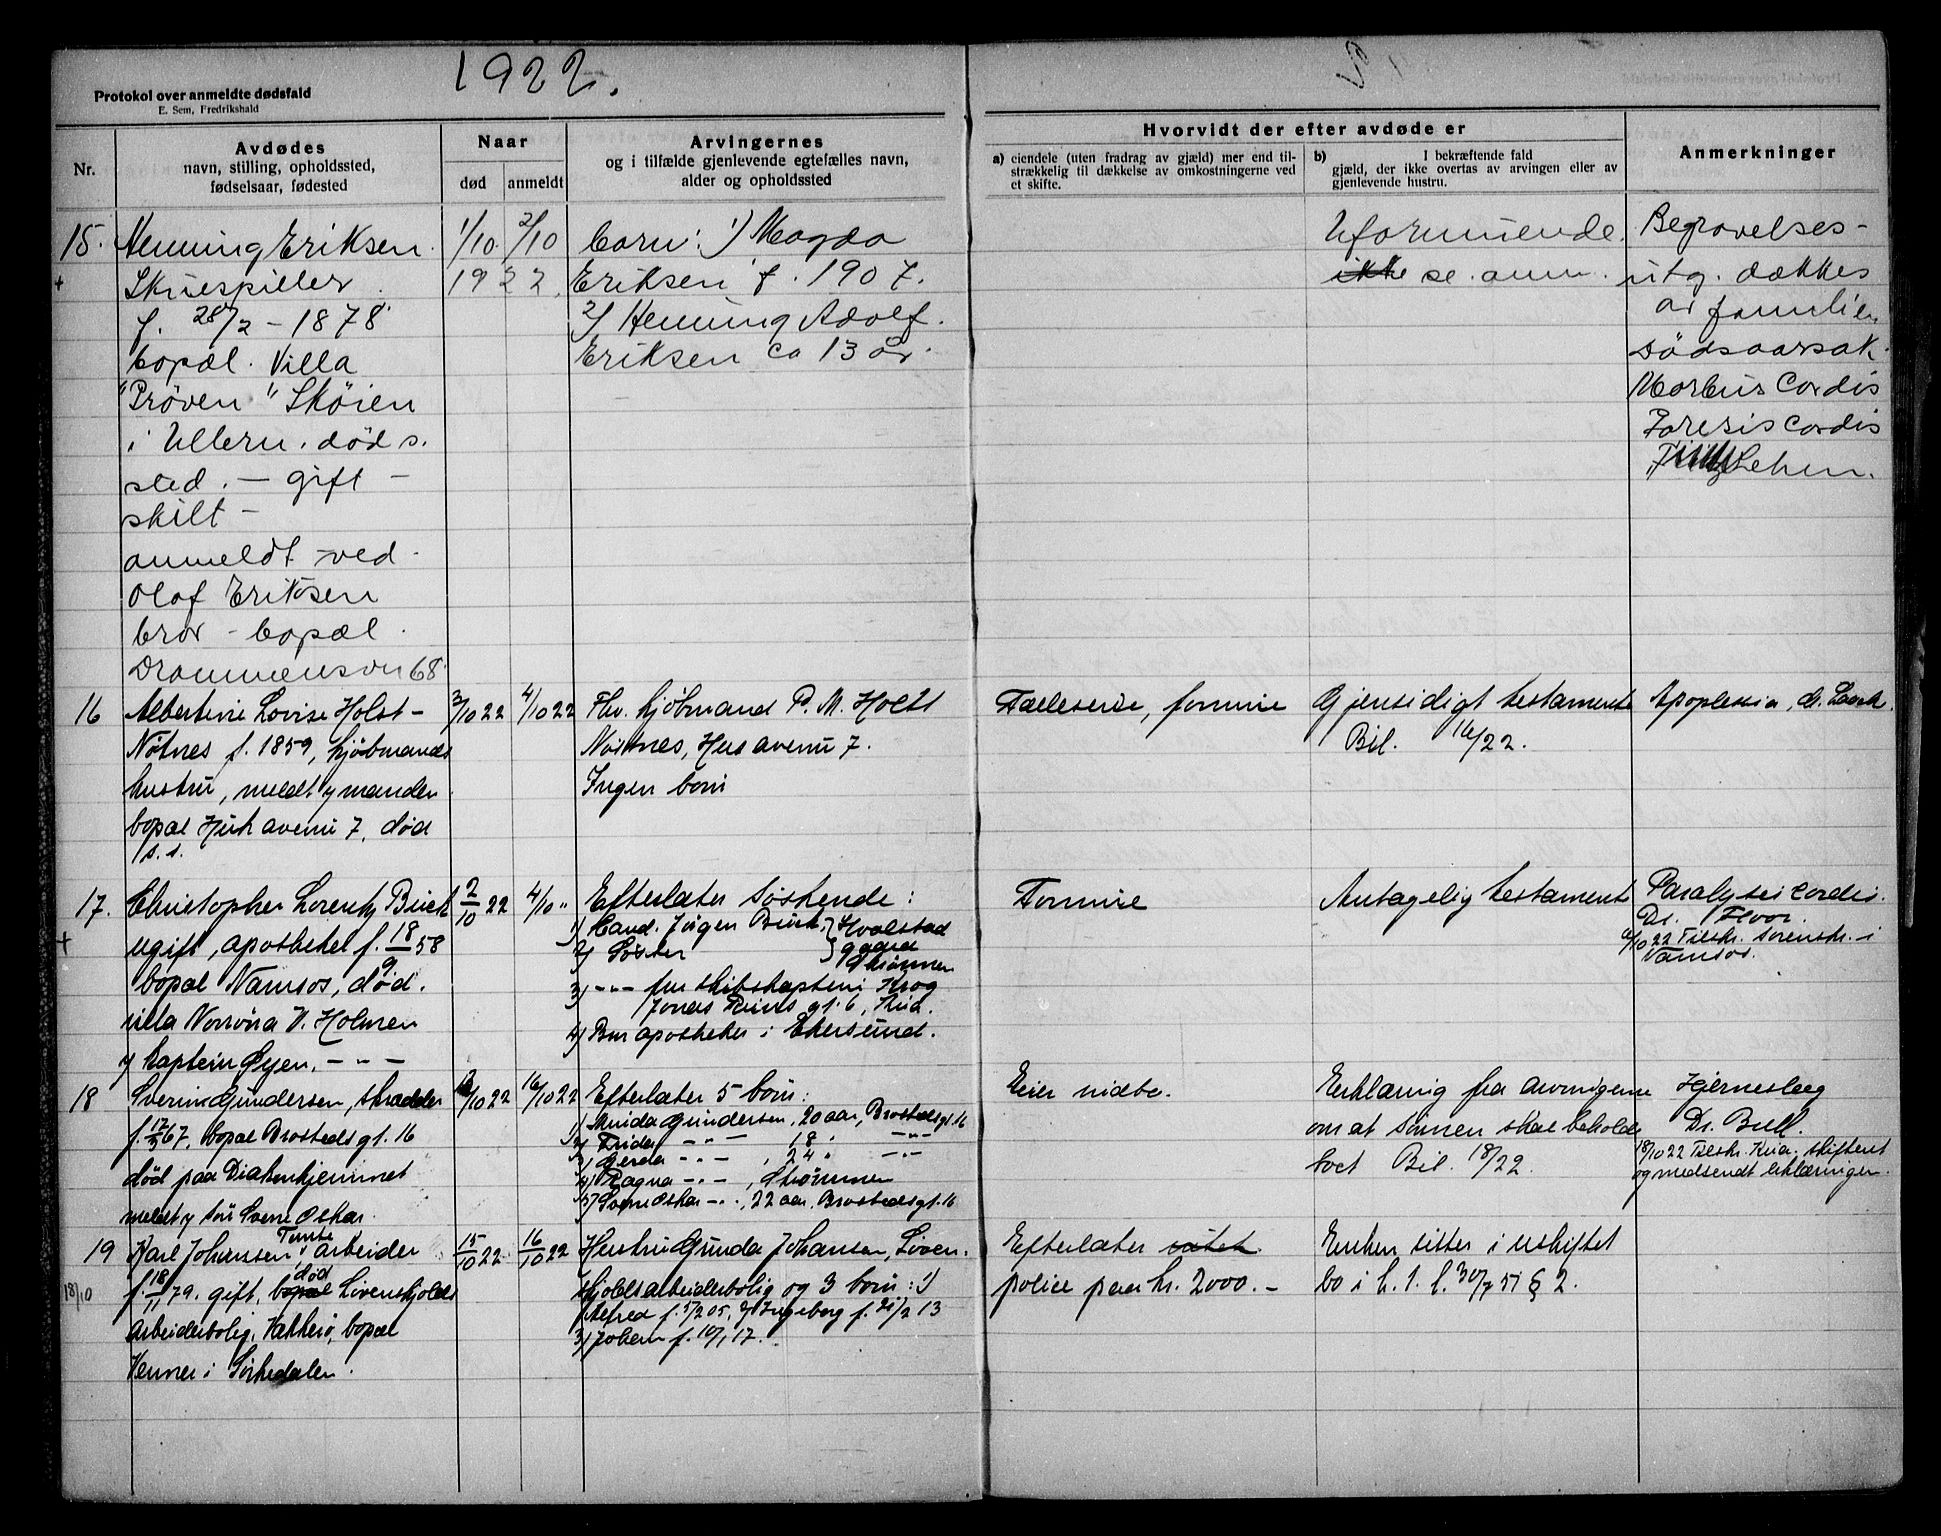 1922.
Protokol over anmeldte dødsfald
E. Sem, Fredrikshald
Nr.
Avdødes
navn, stilling, opholdssted,
fødselsaar, fødested
Naar
død
anmeldt
Arvingernes
og i tilfælde gjenlevende egtefælles navn,
alder og opholdssted
Hvorvidt der efter avdøde er
a) eiendele (uten fradrag av gjæld) mer end til-
strækkelig til dækkelse av omkostningerne ved
et skifte.
b) I bekræftende fald
gjæld, der ikke overtas av arvingen eller av
gjenlevende hustru.
Anmerkninger
15.
Henning Eriksen.
Skuespiller.
f. 28/2 - 1878
bopæl. Villa
"Prøven" Skøien
i Ullern. døds.
sted. - gift -
skilt -
anmeldt ved
Olaf Eriksen
bror - bopæl.
Drammensvn 68
1/10 2/10
1922.
barn: 1) Magda
Eriksen f. 1907.
2) Henning Adolf.
Eriksen ca 13 år.
Uformuende.
ikke se. anm.
Begravelses-
utg. dækkes
av familien
Dødsaarsak
Morbus Cordis
Paresis Cordis
16
Albertine Lovise Holst-
Nøtnes f. 1859, kjøbmands
hustru, meldt y manden
bopæl Huk avenu 7, død
s. s.
3/10 22
4/10 22
Fhv. kjøbmand P. M. Holst
Nøtnes, Huk avenu 7.
Ingen børn
Fælleseie, formue
Gjensidigt testamente
Bil. 16/22.
Apoplexia, dr.
17.
Christopher Lorentz
ugift, apotheker f. 18/9 58
bopæl Namsos, død.
villa Norrøna V. Holmen
y kaptein Øyen. - " -
2/10 22
4/10 "
Efterlater søskende:
1) Cand. Jørgen } Hvalstad
2) Søster
3) - " - fru skibskaptein Krog
Jonas Reins gt. 6, Kra.
4) Bror apotheker i Ekersund.
Formue
Antagelig testament
Paralysis cordis.
Dr.
6/10 22 Tilskr. sorenskr. i
Namsos.
18
Severin Gundersen, skrædder
f. 17/5 67, bopæl Brostedsgt. 16
død paa Diakonhjemmet
meldt y søn Sverre Oskar.
/10 22
16/10 22
Efterlater 5 børn:
1) Gundersen, 20 aar, Brostedsgt. 16
2) Frida - " - 18 " - " -
3) Gerda - " - , 24 " - " -
4) Ragna - " - , Strømmen
5) Sverre Oskar - " - , 22 aar, Brostedsgt. 16
Eier indbo.
Erklæring fra arvingerne
om at sønnen skal beholde
boet Bil. 18/22.
Hjerneslag
Dr. Bull.
18/10 22 Tilskr. Kria. skifteret
og medsendt erklæringen.
19
18/10
Karl Johansen Tomte, arbeider
f. 18/11 79. gift, bopæl død Løvenskjolds
Arbeiderbolig, Vækkerø, bopæl
i Sørkedalen.
15/10 22
16/10 22
Hustru Gunda Johansen, Løven-
skjolds arbeiderbolig og 3 børn: 1)
Alfred f. 5/2 05, 2) Ingeborg f. 21/2 13
3) Johan f. 10/1 17.
Efterlater
police paa kr. 2000.-
Enken sitter i uskiftet
bo i h. t. l. 30/7 51 § 2.